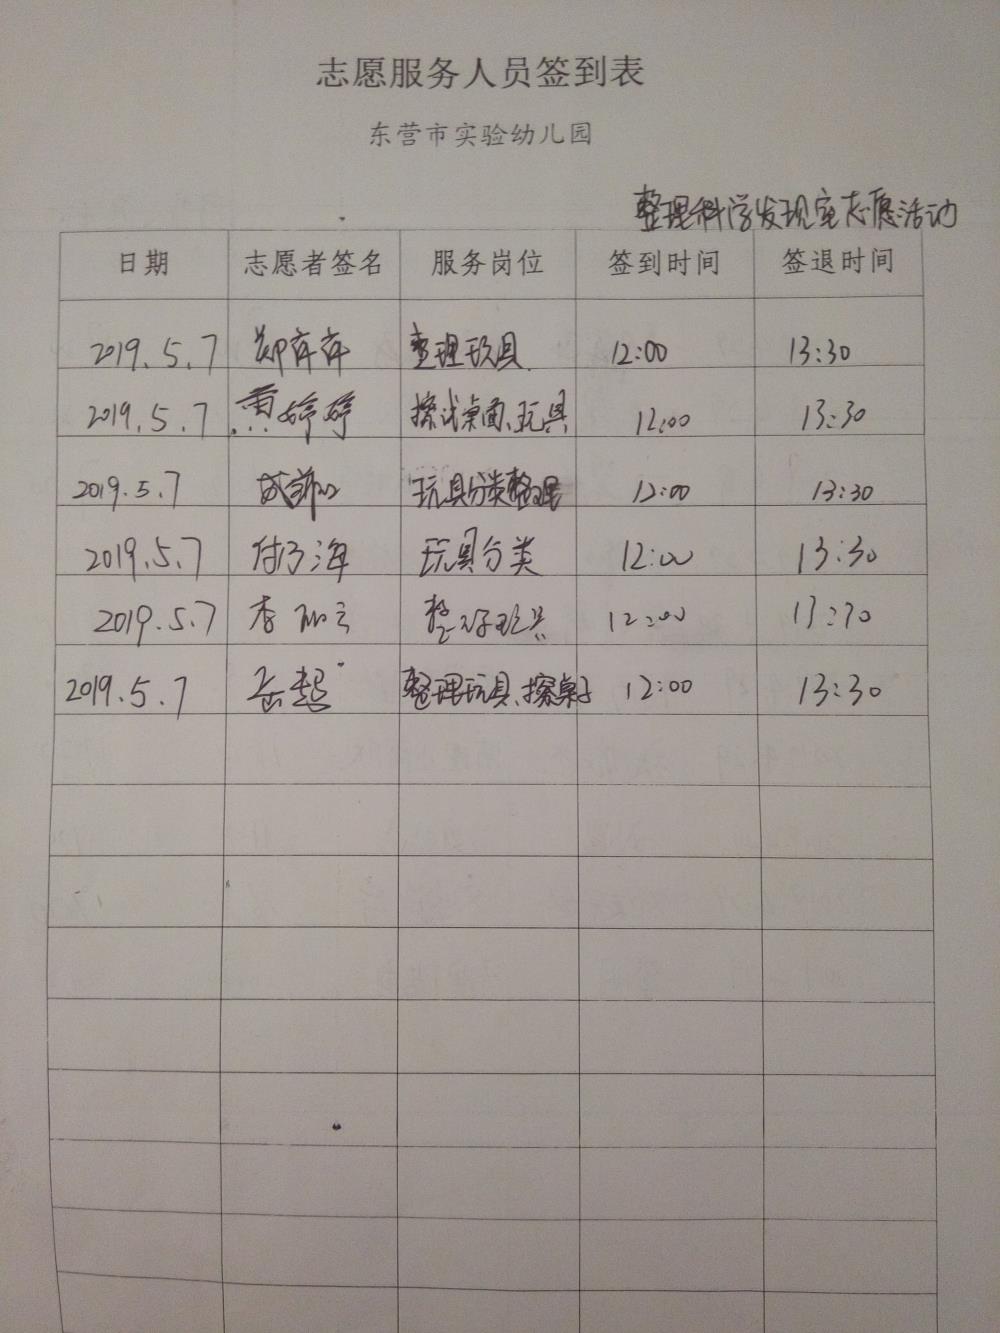 志愿服务人员签到表
东营市实验幼儿园
整理科学发现室志愿活动
日期 志愿者签名 服务岗位 签到时间 签退时间
2019.5.7 整理玩具 12:00 13:30
2019.5.7 黄婷婷 擦试桌面、玩具 12:00 13:30
2019.5.7 玩具分类整理 12:00 13:30
2019.5.7 玩具分类 12:00 13:30
2019.5.7 李 整 玩具 12:00 13:30
2019.5.7 岳超 整理玩具、擦桌子 12:00 13:30